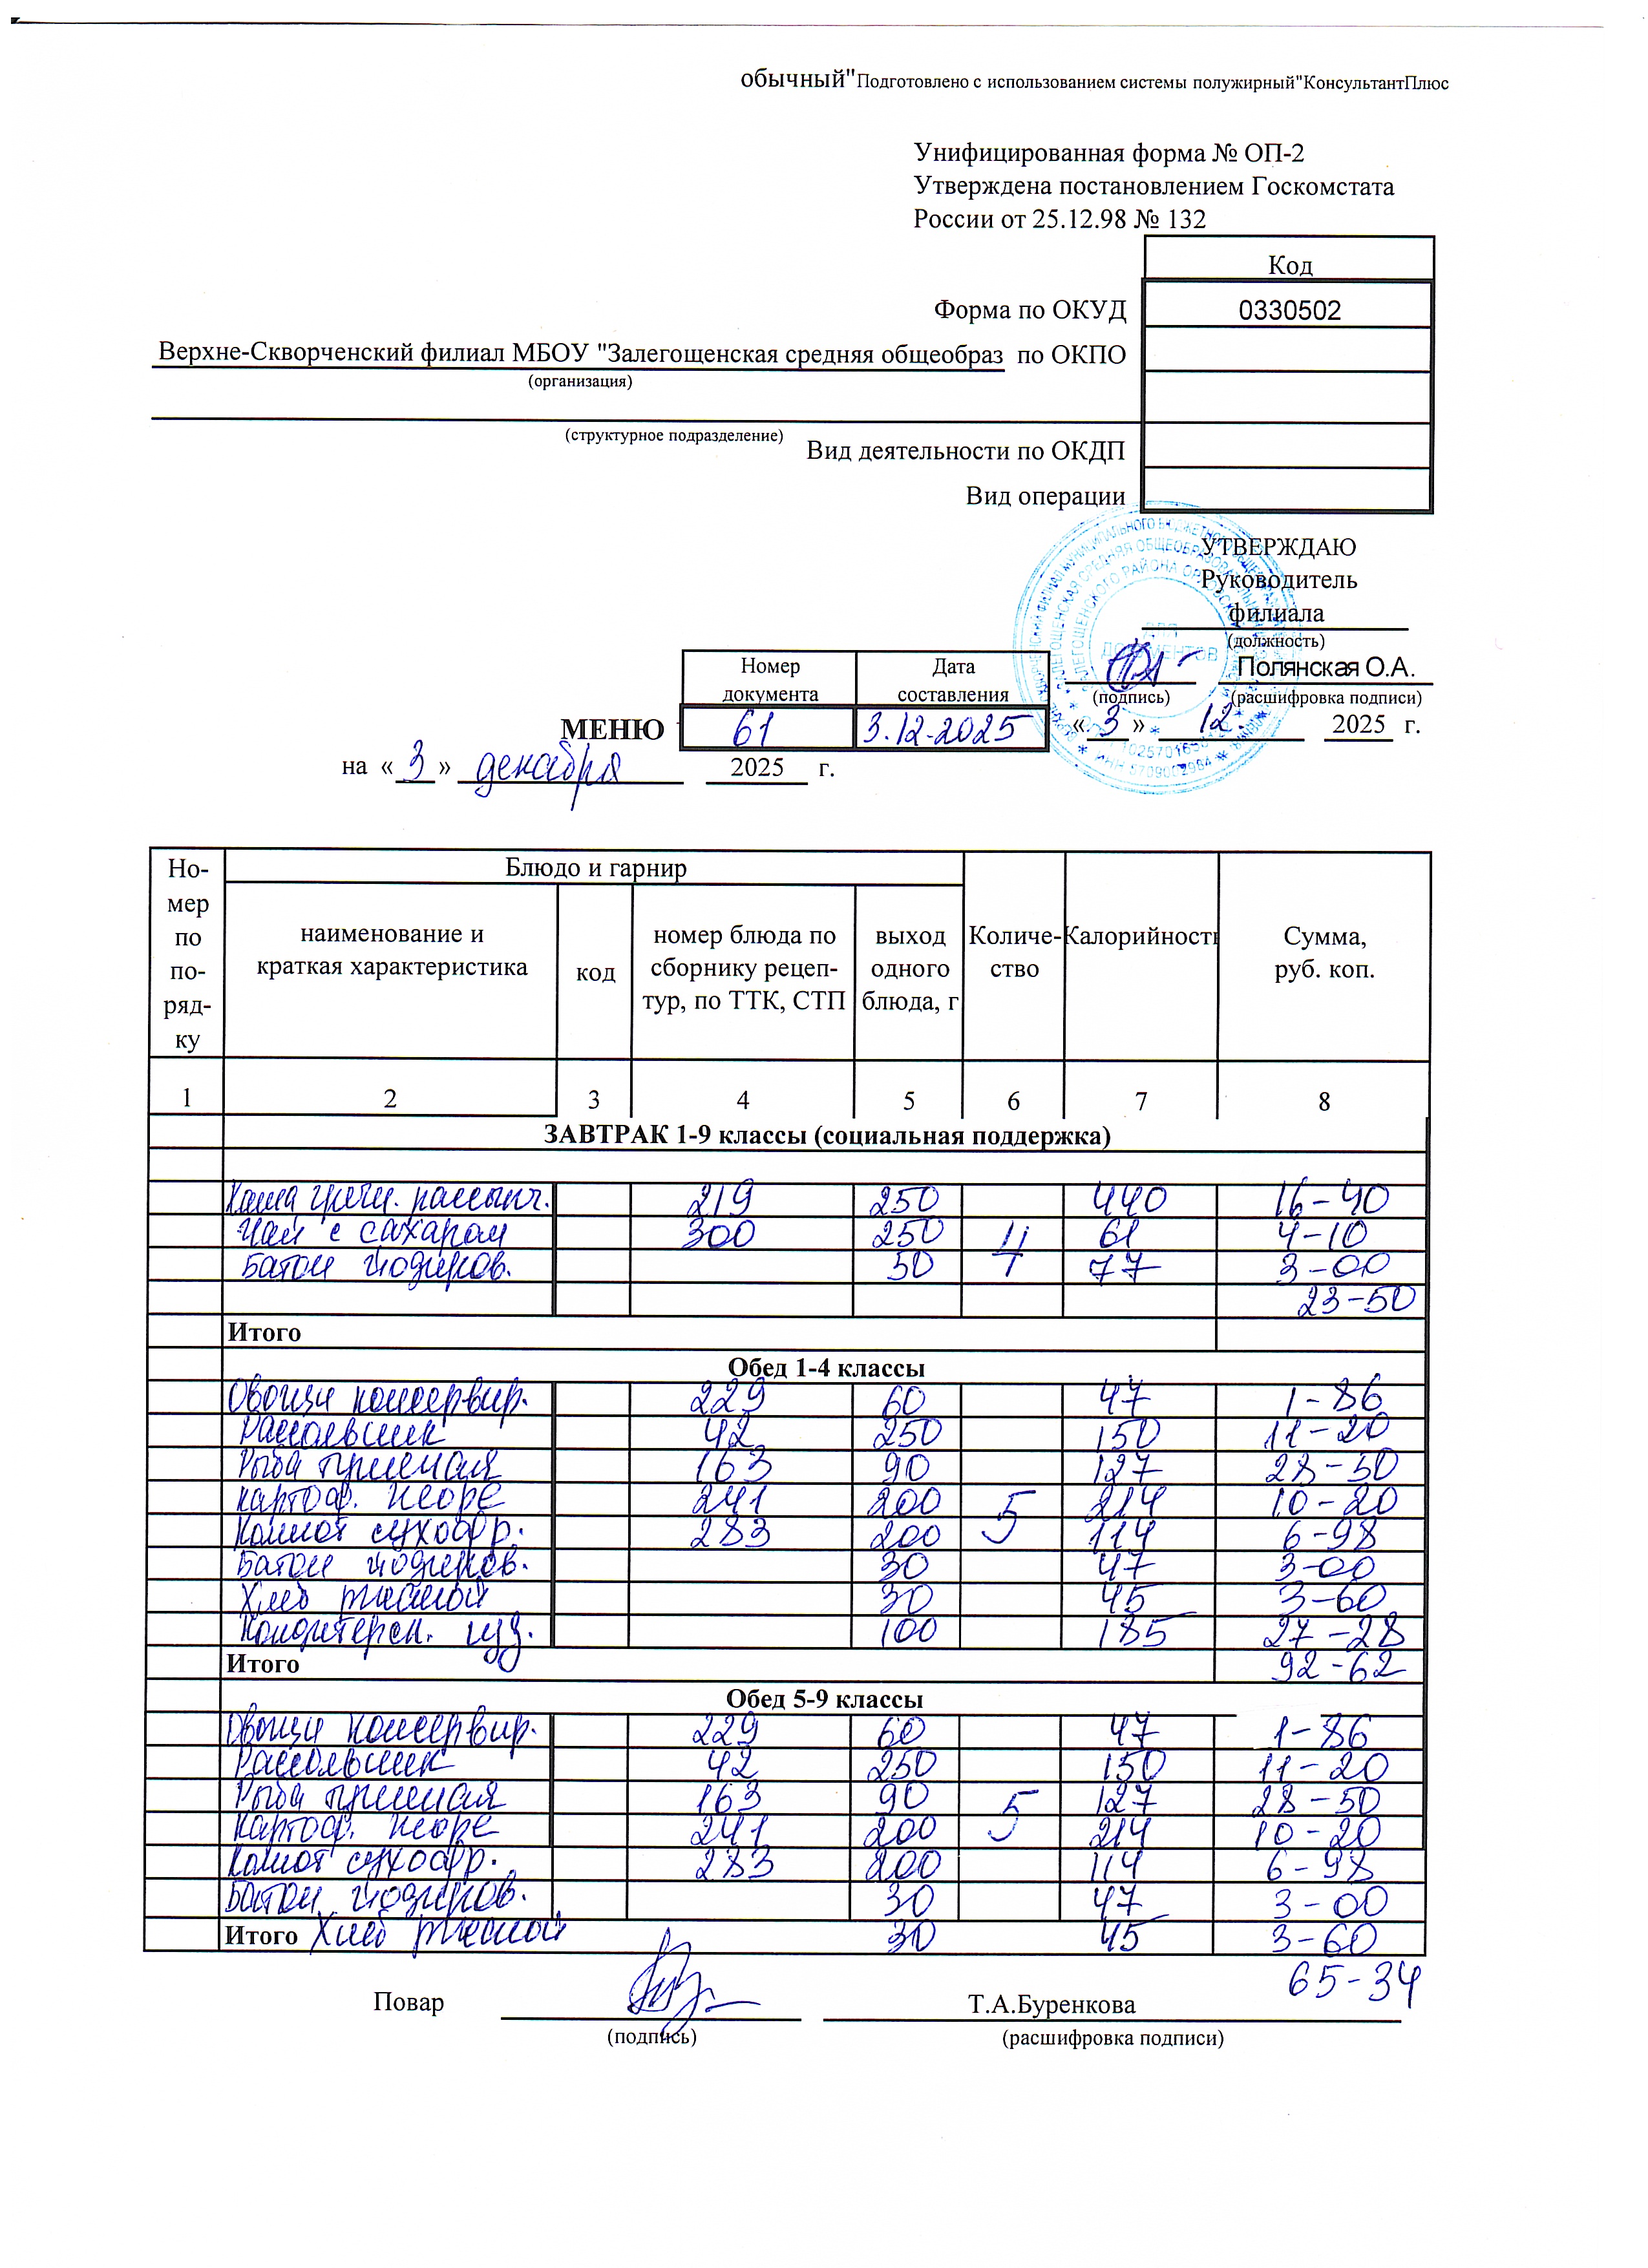 обычный"Подготовлено с использованием системы полужирный"КонсультантПлюс
Унифицированная форма № ОП-2
Утверждена постановлением Госкомстата
России от 25.12.98 № 132
Код
Форма по ОКУД 0330502
Верхне-Скворченский филиал МБОУ "Залегощенская средняя общеобраз по ОКПО
(организация)
(структурное подразделение)
Вид деятельности по ОКДП
Вид операции
УТВЕРЖДАЮ
Руководитель
филиала
(должность)
Полянская О.А.
(подпись) (расшифровка подписи)
«3» 12. 2025 г.
Номер документа Дата составления
МЕНЮ 61 3.12.2025
на «3» декабря 2025 г.
Но-мер по по-ряд-ку Блюдо и гарнир Количе-ство Калорийность Сумма, руб. коп.
наименование и краткая характеристика код номер блюда по сборнику рецеп-тур, по ТТК, СТП выход одного блюда, г
1 2 3 4 5 6 7 8
ЗАВТРАК 1-9 классы (социальная поддержка)
Каша гречн. рассыпч. 219 250 440 16-40
Чай с сахаром 300 250 4 61 4-10
Батон йодиров. 50 77 3-00
23-50
Итого
Обед 1-4 классы
Овощи консервир. 229 60 47 1-86
Рассольник 42 250 150 11-20
Рыба припущ 163 90 127 28-50
Картоф. пюре 241 200 5 214 10-20
Компот сухофр. 283 200 114 6-98
Батон йодиров. 30 47 3-00
Хлеб ржаной 30 45 3-60
Кондитерск. изд. 100 185 27-28
Итого 92-62
Обед 5-9 классы
Овощи консервир. 229 60 47 1-86
Рассольник 42 250 150 11-20
Рыба 163 90 5 127 28-50
Картоф. пюре 241 200 214 10-20
Компот сухофр. 283 200 114 6-98
Батон йодиров. 30 47 3-00
Итого Хлеб ржаной 30 45 3-60
65-34
Повар Т.А.Буренкова
(подпись) (расшифровка подписи)